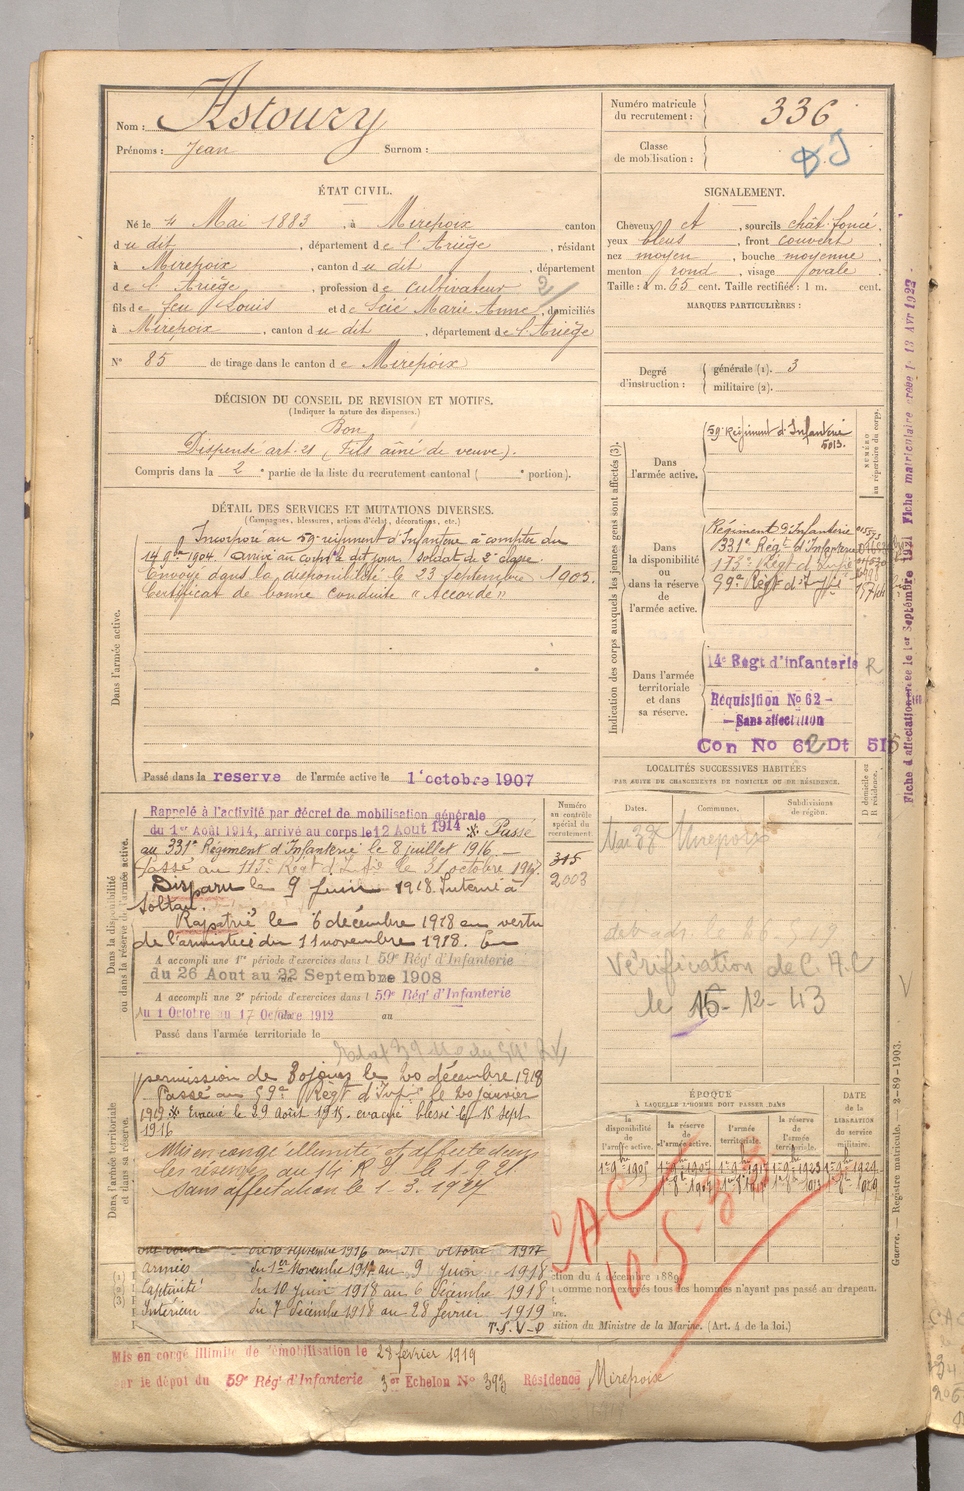 Nom : Astoury
Prénoms : Jean Surnom :
Numéro matricule du recrutement : 336
Classe de mobilisation :
ÉTAT CIVIL.
Né le 4 Mai 1883, à Mirepoix canton
du dit, département de l'Ariège, résidant
à Mirepoix, canton du dit, département
de l'Ariège, profession de cultivateur 2
fils de feu Louis et de Marie Anne, domiciliés
à Mirepoix, canton du dit, département de l'Ariège
N° 85 de tirage dans le canton de Mirepoix
SIGNALEMENT.
Cheveux et, sourcils chât. foncé,
yeux bleus, front couvert
nez moyen, bouche moyenne
menton rond, visage ovale
Taille : 1 m. 65 cent. Taille rectifiée : 1 m. cent.
MARQUES PARTICULIÈRES :
Degré d'instruction : générale (1). 3
militaire (2).
DÉCISION DU CONSEIL DE REVISION ET MOTIFS.
(Indiquer la nature des dispenses.)
Bon
Dispensé art. 21 (Fils aîné de veuve).
Compris dans la 2e partie de la liste du recrutement cantonal ( e portion).
DÉTAIL DES SERVICES ET MUTATIONS DIVERSES.
(Campagnes, blessures, actions d'éclat, décorations, etc.)
Dans l'armée active.
Incorporé au 59e régiment d'Infanterie à compter du
14 9bre 1904. Arrivé au corps le dit jour. soldat de 2e classe.
Envoyé dans la disponibilité le 23 septembre 1905.
Certificat de bonne conduite "Accordé"
Passé dans la reserve de l'armée active le 1 octobre 1907
Indication des corps auxquels les jeunes gens sont affectés (3).
NUMÉRO au répertoire du corps.
Dans l'armée active.
59e Régiment d'Infanterie
5013.
Dans la disponibilité ou dans la réserve de l'armée active.
Régiment d'Infanterie
331e Régt d'Infanterie
113e Régt d'Infie
59e Régt d'Infie
Dans l'armée territoriale et dans sa réserve.
14e Régt d'infanterie R
Réquisition No 62 -
- Sans affectation
Con No 62 Dt 515
LOCALITÉS SUCCESSIVES HABITÉES
PAR SUITE DE CHANGEMENTS DE DOMICILE OU DE RÉSIDENCE.
Dates. Communes. Subdivisions de région. D domicile ou R résidence.
Mirepoix
Vérification de C.A.C
le 15-12-43
Dans la disponibilité ou dans la réserve de l'armée active.
Numéro au contrôle spécial du recrutement.
315
2003
Rappelé à l'activité par décret de mobilisation générale
du 1er Août 1914, arrivé au corps le 12 Aout 1914 ※ Passé
au 331e Régiment d'Infanterie le 8 juillet 1916 —
Passé au 113e Régt d'Infie le 31 octobre 1917.
Disparu le 9 Juin 1918. Interné à
Soltau.
Rapatrié le 6 décembre 1918 en vertu
de l'armistice du 11 novembre 1918. En
A accompli une 1re période d'exercices dans l 59e Rég' d'Infanterie
du 26 Aout au 22 Septembre 1908
A accompli une 2e période d'exercices dans l 59e Rég' d'Infanterie
du 1 Octobre au 17 Octobre 1912 au
Passé dans l'armée territoriale le
Dans l'armée territoriale et dans sa réserve.
permission de 30 jours le 20 décembre 1918
Passé au 59e Régt d'Infie le 20 janvier
1919 ※ Evacué le 29 Août 1915. evacué blessé le 15 sept.
1916
Mis en congé illimité et affecté dans
les réserves au 14 R.I. le 1-9-21.
Sans affectation le 1-3.1927
ÉPOQUE
À LAQUELLE L'HOMME DOIT PASSER DANS
la disponibilité de l'armée active. la réserve de l'armée active. l'armée territoriale. la réserve de l'armée territoriale. DATE de la LIBÉRATION du service militaire.
CAC
10-5-
septembre 1916 au 31 octobre 1917
Armées du 1er Novembre 1917 au 9 Juin 1918
Captivité du 10 juin 1918 au 6 Décembre 1918
Intérieur du 7 Décembre 1918 au 28 février 1919
T.S.V-P
ction du 4 décembre 1889
comme non exercés tous les hommes n'ayant pas passé au drapeau.
sition du Ministre de la Marine. (Art. 4 de la loi.)
Mis en congé illimité de démobilisation le 28 février 1919
par le dépôt du 59e Rég' d'Infanterie 3er Echelon No 393 Résidence Mirepoix
Fiche d'affectation créée le 1er Septembre 1921 Fiche matriculaire créée l 13 Avr 1922
Guerre. — Registre matricule. — 3-89-1903.